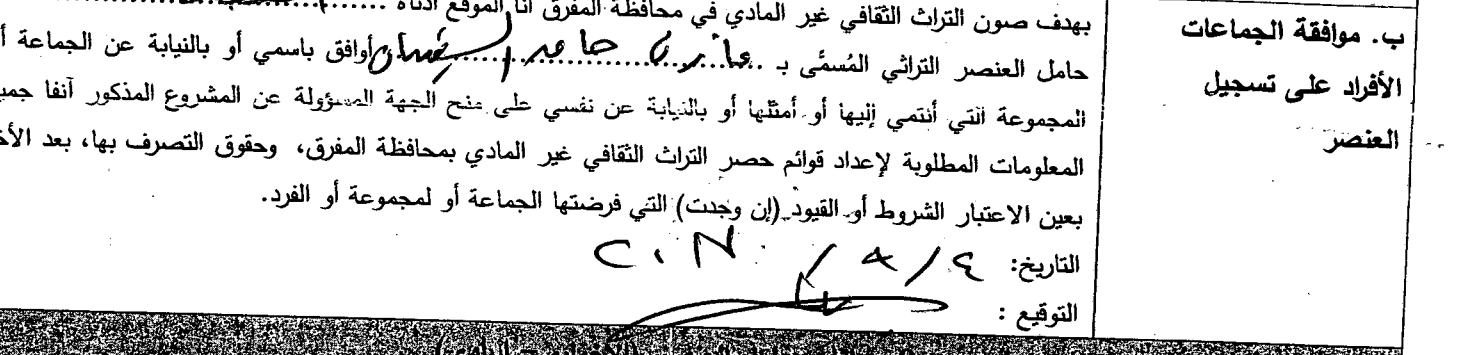 ب. موافقة الجماعات
الأفراد على تسجيل
العنصر
بهدف صون التراث الثقافي غير المادي في محافظة المفرق أنا الموقع أدناه
حامل العنصر التراثي المُسمَّى بـ ........ أوافق باسمي أو بالنيابة عن الجماعة أ
المجموعة التي أنتمي إليها أو أمثلها أو بالنيابة عن نفسي على منح الجهة المسؤولة عن المشروع المذكور آنفا جمي
المعلومات المطلوبة لإعداد قوائم حصر التراث الثقافي غير المادي بمحافظة المفرق، وحقوق التصرف بها، بعد الأخ
بعين الاعتبار الشروط أو القيود (إن وجدت) التي فرضتها الجماعة أو لمجموعة أو الفرد.
التاريخ: ٤ / ٨ /
التوقيع :